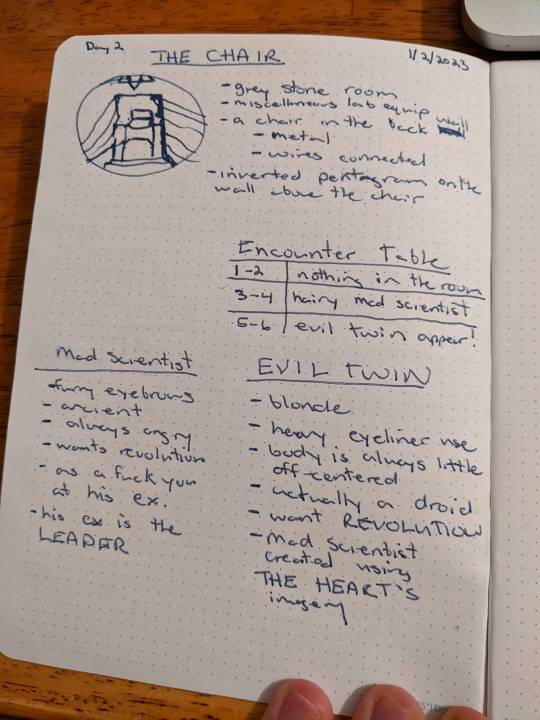 Day 2
THE CHAIR
1/2/2023
- grey stone room
- miscellaneous lab equip
- a chair in the back wall
- metal
- wires connected
- inverted pentagram on the
wall above the chair
Encounter Table
1-2 nothing in the room
3-4 hairy mad scientist
5-6 evil twin appear!
Mad Scientist
- furry eyebrows
- ancient
- always angry
- wants revolution
- as a fuck you
at his ex.
- his ex is the
LEADER
EVIL TWIN
- blonde
- heavy eyeliner use
- body is always little
off-centered
- actually a droid
- want REVOLUTION
- Mad Scientist
created using
THE HEART'S
imagery